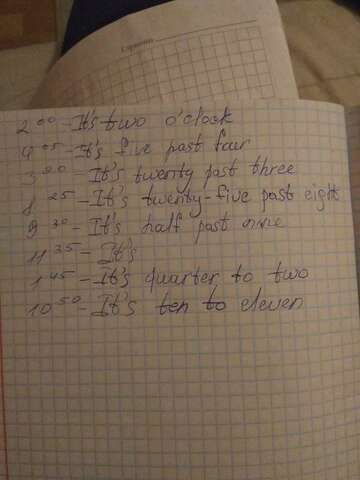 2 00 - It's two o'clock
4 05 - It's five past four
3 20 - It's twenty past three
8 25 - It's twenty-five past eight
9 30 - It's half past nine
11 35 - It's
1 45 - It's quarter to two
10 50 - It's ten to eleven